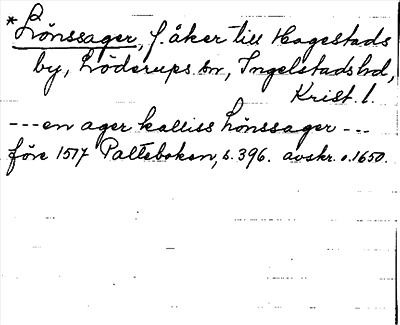 *Lönssager, f. åker till Hagestads
by, Löderups sn, Ingelstads hd,
Krist. l.
--- en ager kalliss Lönssager ---
före 1517 Paltebokan, s. 396. avskr. o. 1650.